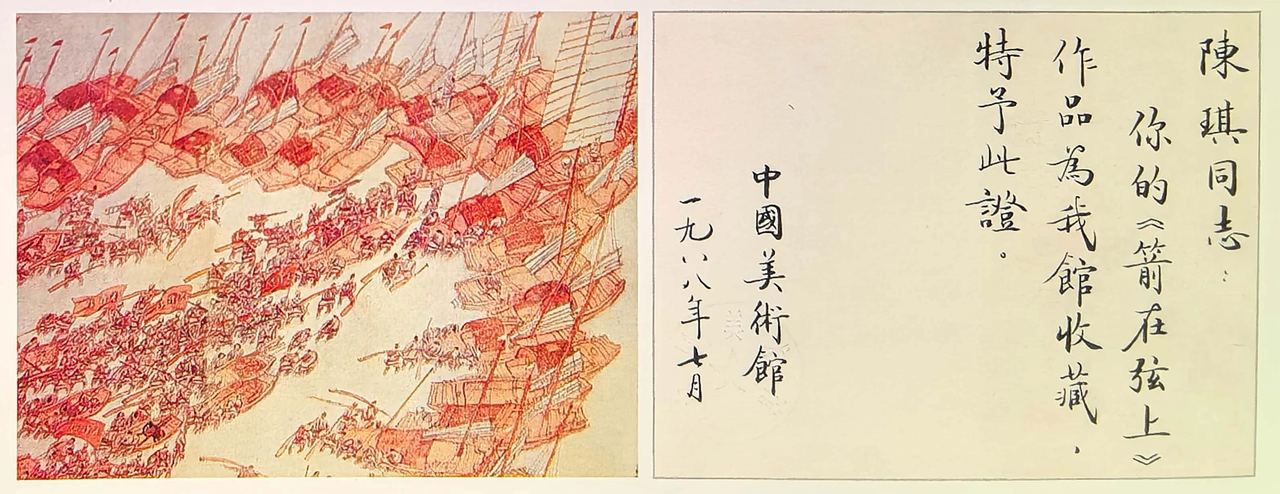 陳琪同志：
你的《箭在弦上》
作品為我館收藏，
特予此證。
中國美術館
一九八八年七月